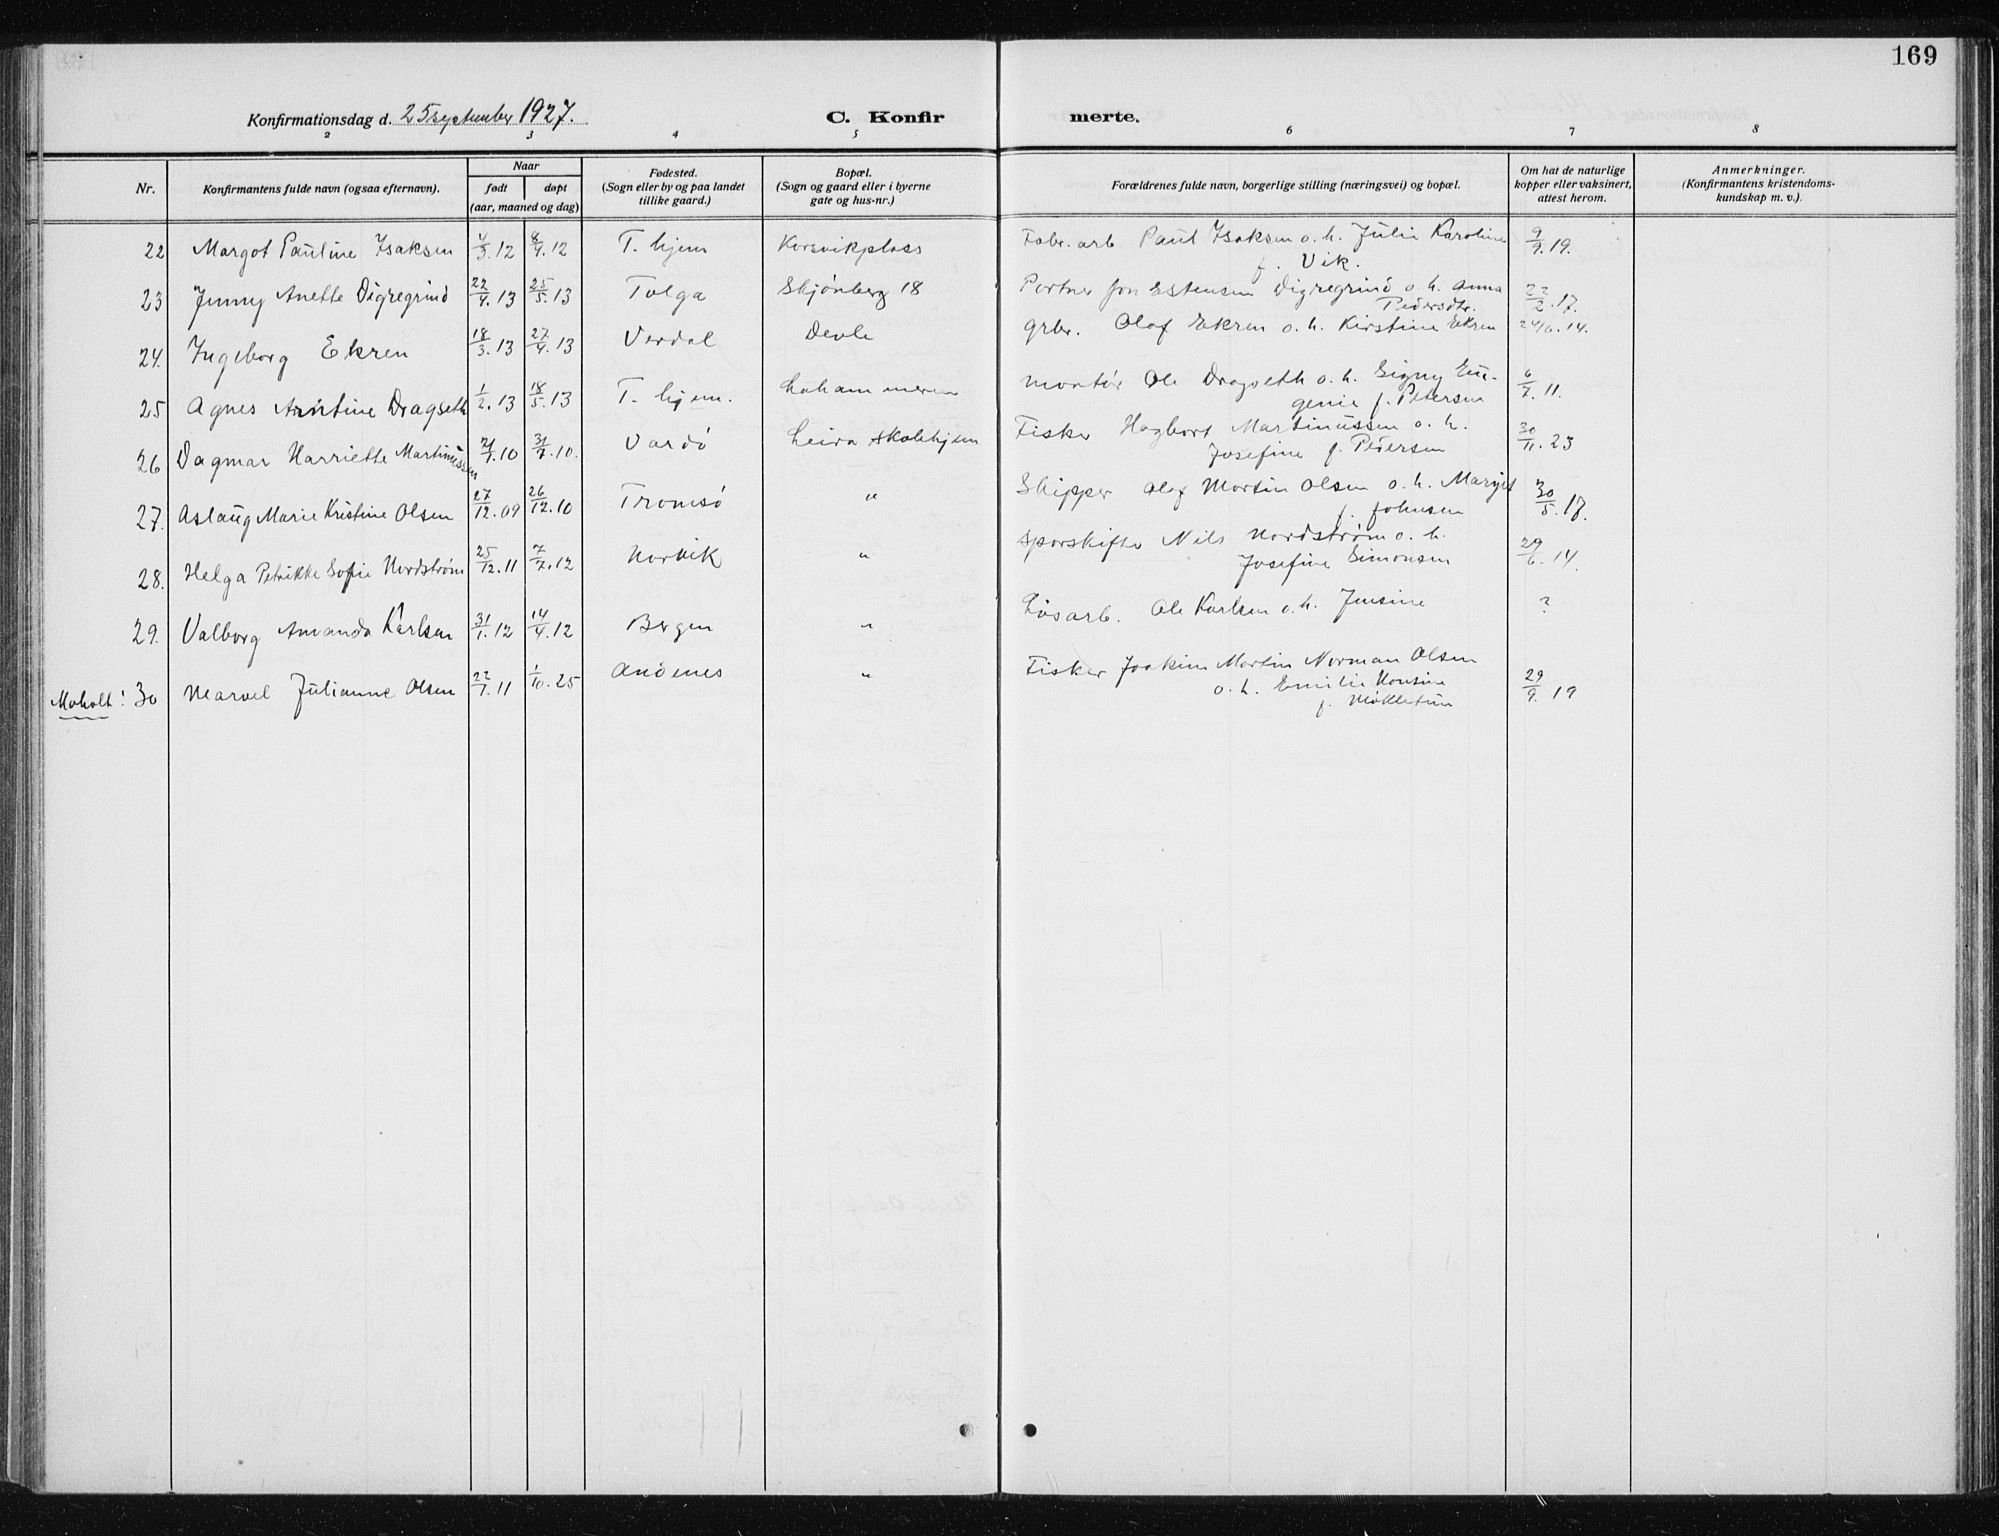 169
Konfirmationsdag d. 25 september 1927. C. Konfirmerte.
2 3 4 5 6 7 8
Nr. Konfirmantens fulde navn (ogsaa efternavn). Naar født døpt (aar, maaned og dag) Fødested. (Sogn eller by og paa landet tillike gaard.) Bopæl. (Sogn og gaard eller i byerne gate og hus-nr.) Forældrenes fulde navn, borgerlige stilling (næringsvei) og bopæl. Om hat de naturlige kopper eller vaksinert, attest herom. Anmerkninger. (Konfirmantens kristendoms-kundskap m. v.).
22 Margot Pauline Isaksen 4/3.12 8/4.12 T. hjem Korsvikplass Fabr. arb. Paul Isaksen o. h. Julie Karoline 9/9.19.
f. Vik.
23 Jenny Anette Digregrind 22/4.13 25/5.13 Tolga Skjønberg 18 Portner Jon Estensen Digregrind o. h. Anna 22/2.17.
Pedersdtr.
24. Ingeborg Ekren 18/3.13 27/4.13 Verdal Devle grbr. Olaf Ekren o. h. Kirstine Ekren 24/6.14.
25 Agnes Arntine Dragseth 1/2.13 18/5.13 T. hjem. Lohammeren montør Ole Dragseth o. h. Signy Eu- 6/7.11.
genie f. Petersen
26 Dagmar Harriette Martinussen /7.10 31/7.10. Vardø Leira skolehjem Fisker Hagbart Martinussen o. h. 30/11.23
Josefine f. Pedersen
27. Aslaug Marie Kristine Olsen 27/12.09 26/12.10 Tromsø " Skipper Olaf Martin Olsen o. h. Margit 30/5.17.
f. Johnsen
28. Helga Petrikke Sofie Nordstrøm 25/12.11 7/7.12 Narvik " sporskifter Nils Nordstrøm o. h. 29/6.14.
Josefine Simonsen
29. Valborg Amanda Karlsen 31/1.12 14/4.12 Bergen " Løsarb. Ole Karlsen o. h. Jensine ?
Moholt! 30 Marvel Julianne Olsen 22/7.11 1/10.25 Andenes " Fisker Joakim Martin Norman Olsen 29/9.19
o. h. Emilie Hansine
f. Mikkelsen